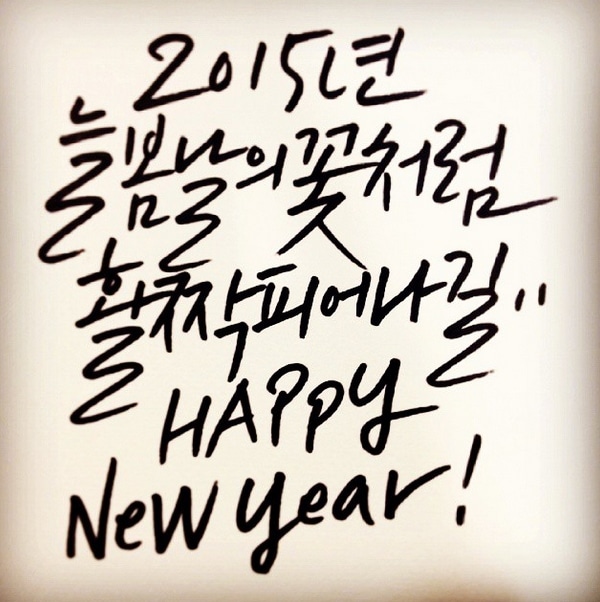 2015년
늘 봄날의 꽃처럼
활짝 피어나길..
HAPPY
New year!